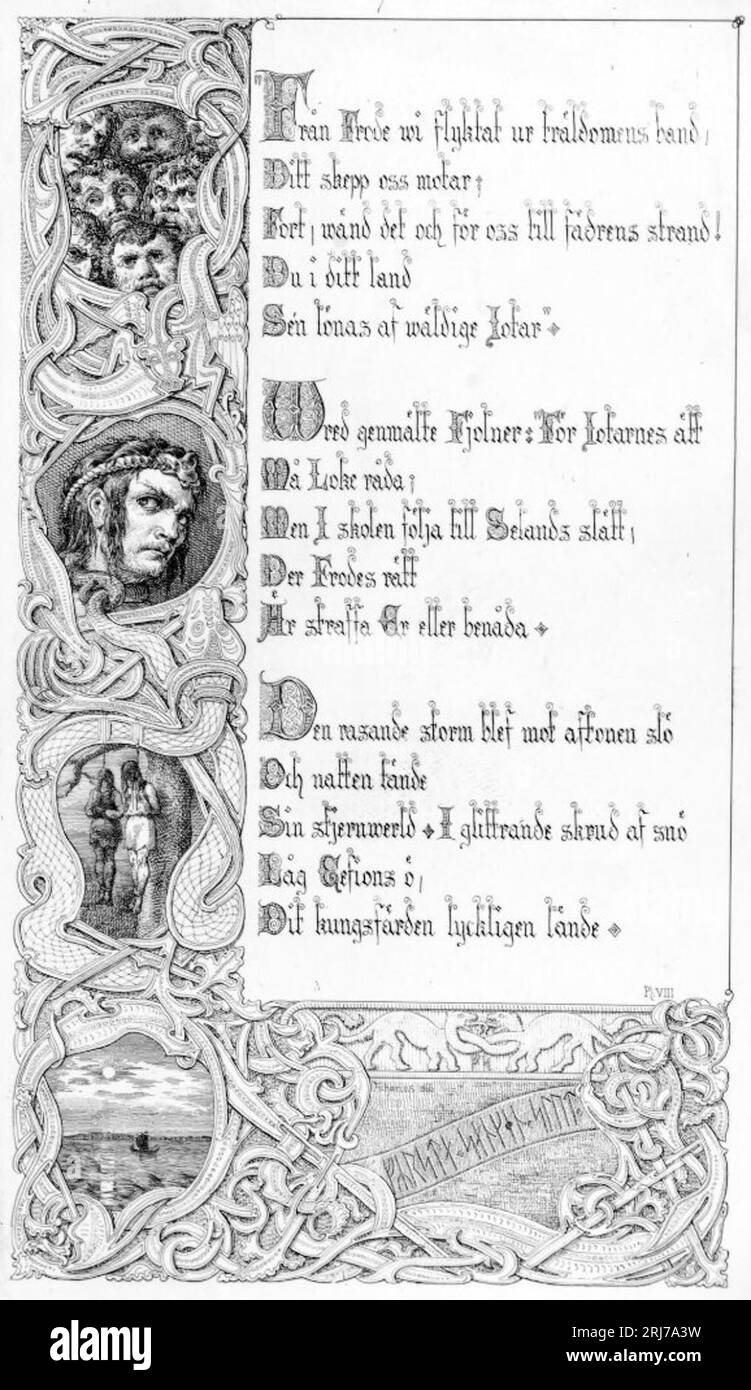 "Från Frode wi flyktat ur träldomens band,
Ditt skepp oss motar;
Fort, wänd det och för oss till fädrens strand!
Du i ditt land
Sén lönas af wäldige Jotar"
Wred genmälte Fjolner: "För Jotarnes ätt
Må Loke råda;
Men I skolen följa till Selands slätt,
Der Frodes rätt
Är straffa Er eller benåda
Den rasande storm blef mot aftonen slö
Och natten tände
Sin stjernwerld I glittrande skrud af snö
Låg Gefions ö,
Dit kungsfärden lyckligen lände
Pl. VIII
a
alamy
Image ID: 2RJ7A3W
www.alamy.com